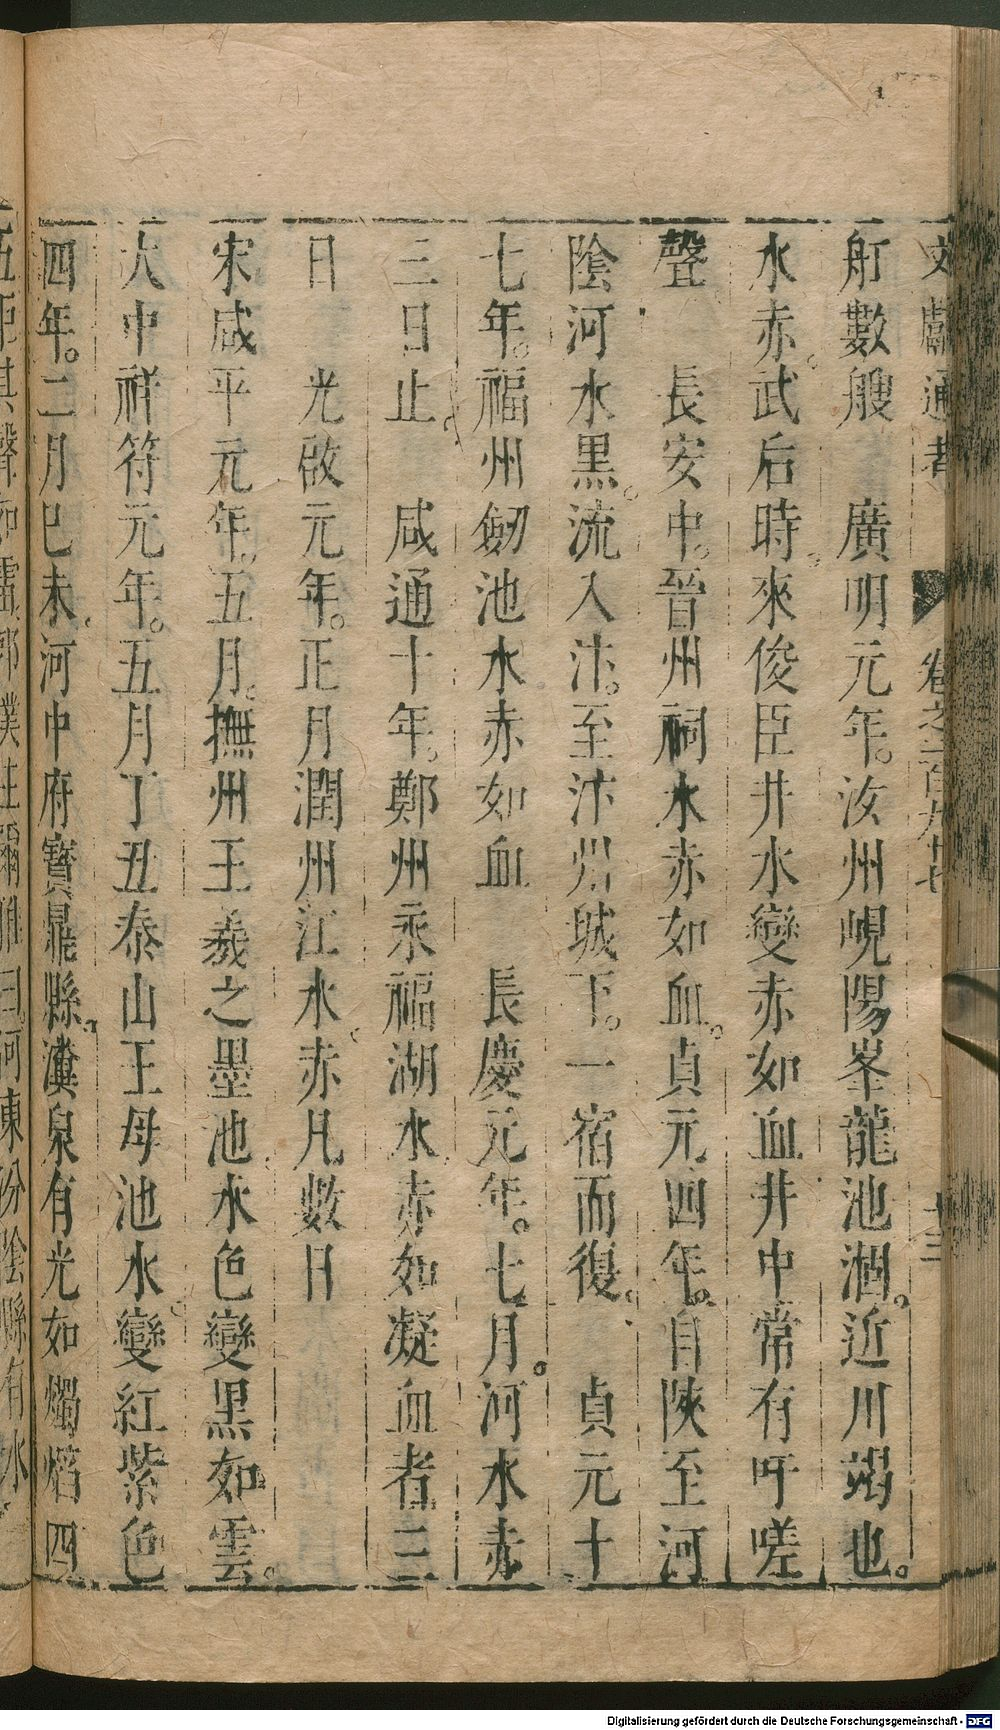 文獻通考 卷之二百九十七 十三
舡數艘 廣明元年。汝州峴陽峯龍池涸。近川竭也。
水赤。武后時。來俊臣井水變赤如血井中常有吁嗟
聲 長安中。晉州祠水赤如血。貞元四年。自陝至河
陰河水黑。流入汴。至汴州城下。一宿而復。 貞元十
七年。福州劒池水赤如血 長慶元年。七月。河水赤
三日止。 咸通十年。鄭州永福湖水赤如凝血者三
日 光啟元年。正月潤州江水。赤凡數日
宋咸平元年。五月。撫州王羲之墨池水色變黑如雲。
大中祥符元年。五月丁丑泰山王母池水變紅紫色
四年。二月己未。河中府寶鼎縣。瀵泉有光如燭熖四
五炬其聲如雷郭璞註爾雅曰河東汾陰縣有水
Digitalisierung gefördert durch die Deutsche Forschungsgemeinschaft - DFG